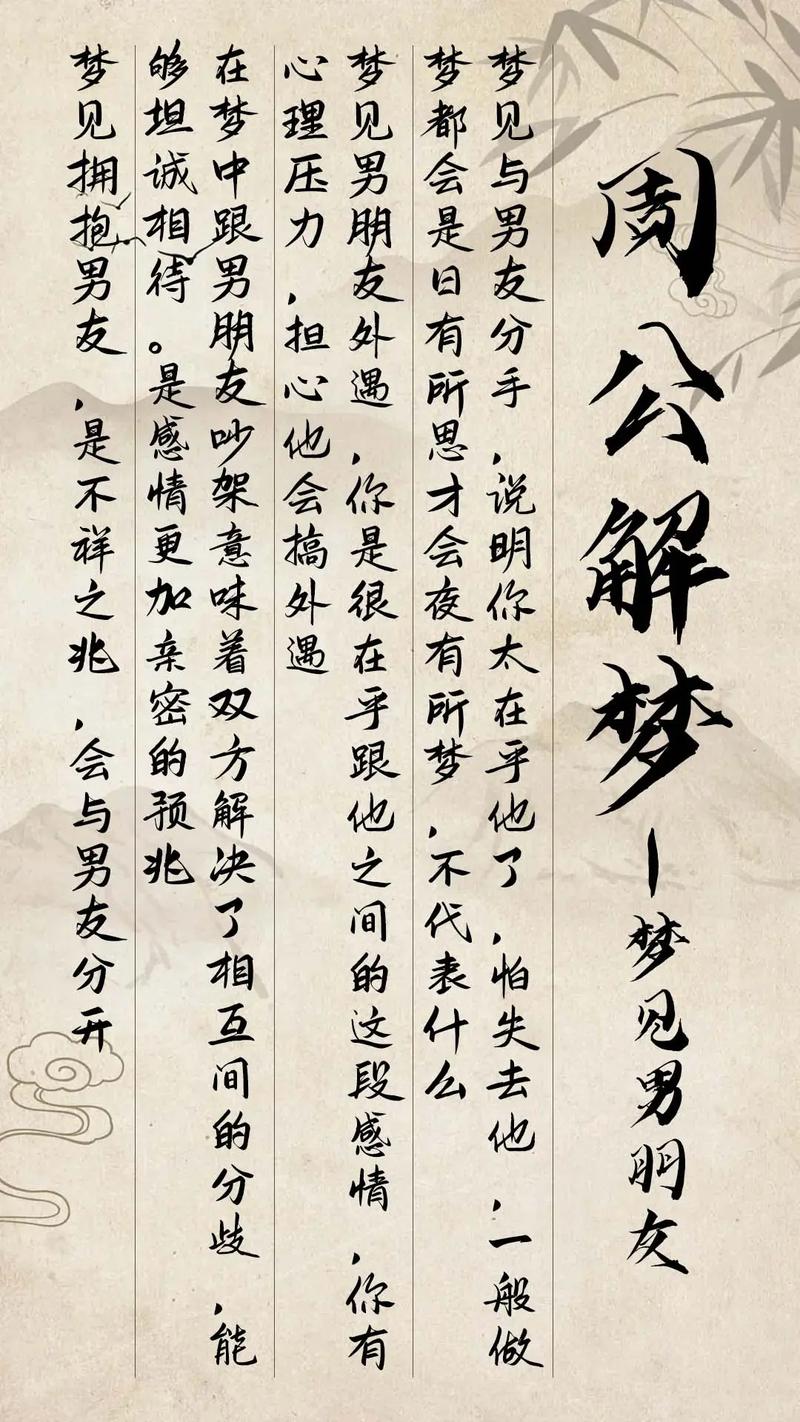 周公解梦-梦见男朋友
梦见与男友分手，说明你太在乎他了，怕失去他，一般做
梦都会是日有所思才会夜有所梦，不代表什么
梦见男朋友外遇，你是很在乎跟他之间的这段感情，你有
心理压力，担心他会搞外遇
在梦中跟男朋友吵架意味着双方解决了相互间的分歧，能
够坦诚相待。是感情更加亲密的预兆
梦见拥抱男友，是不祥之兆，会与男友分开